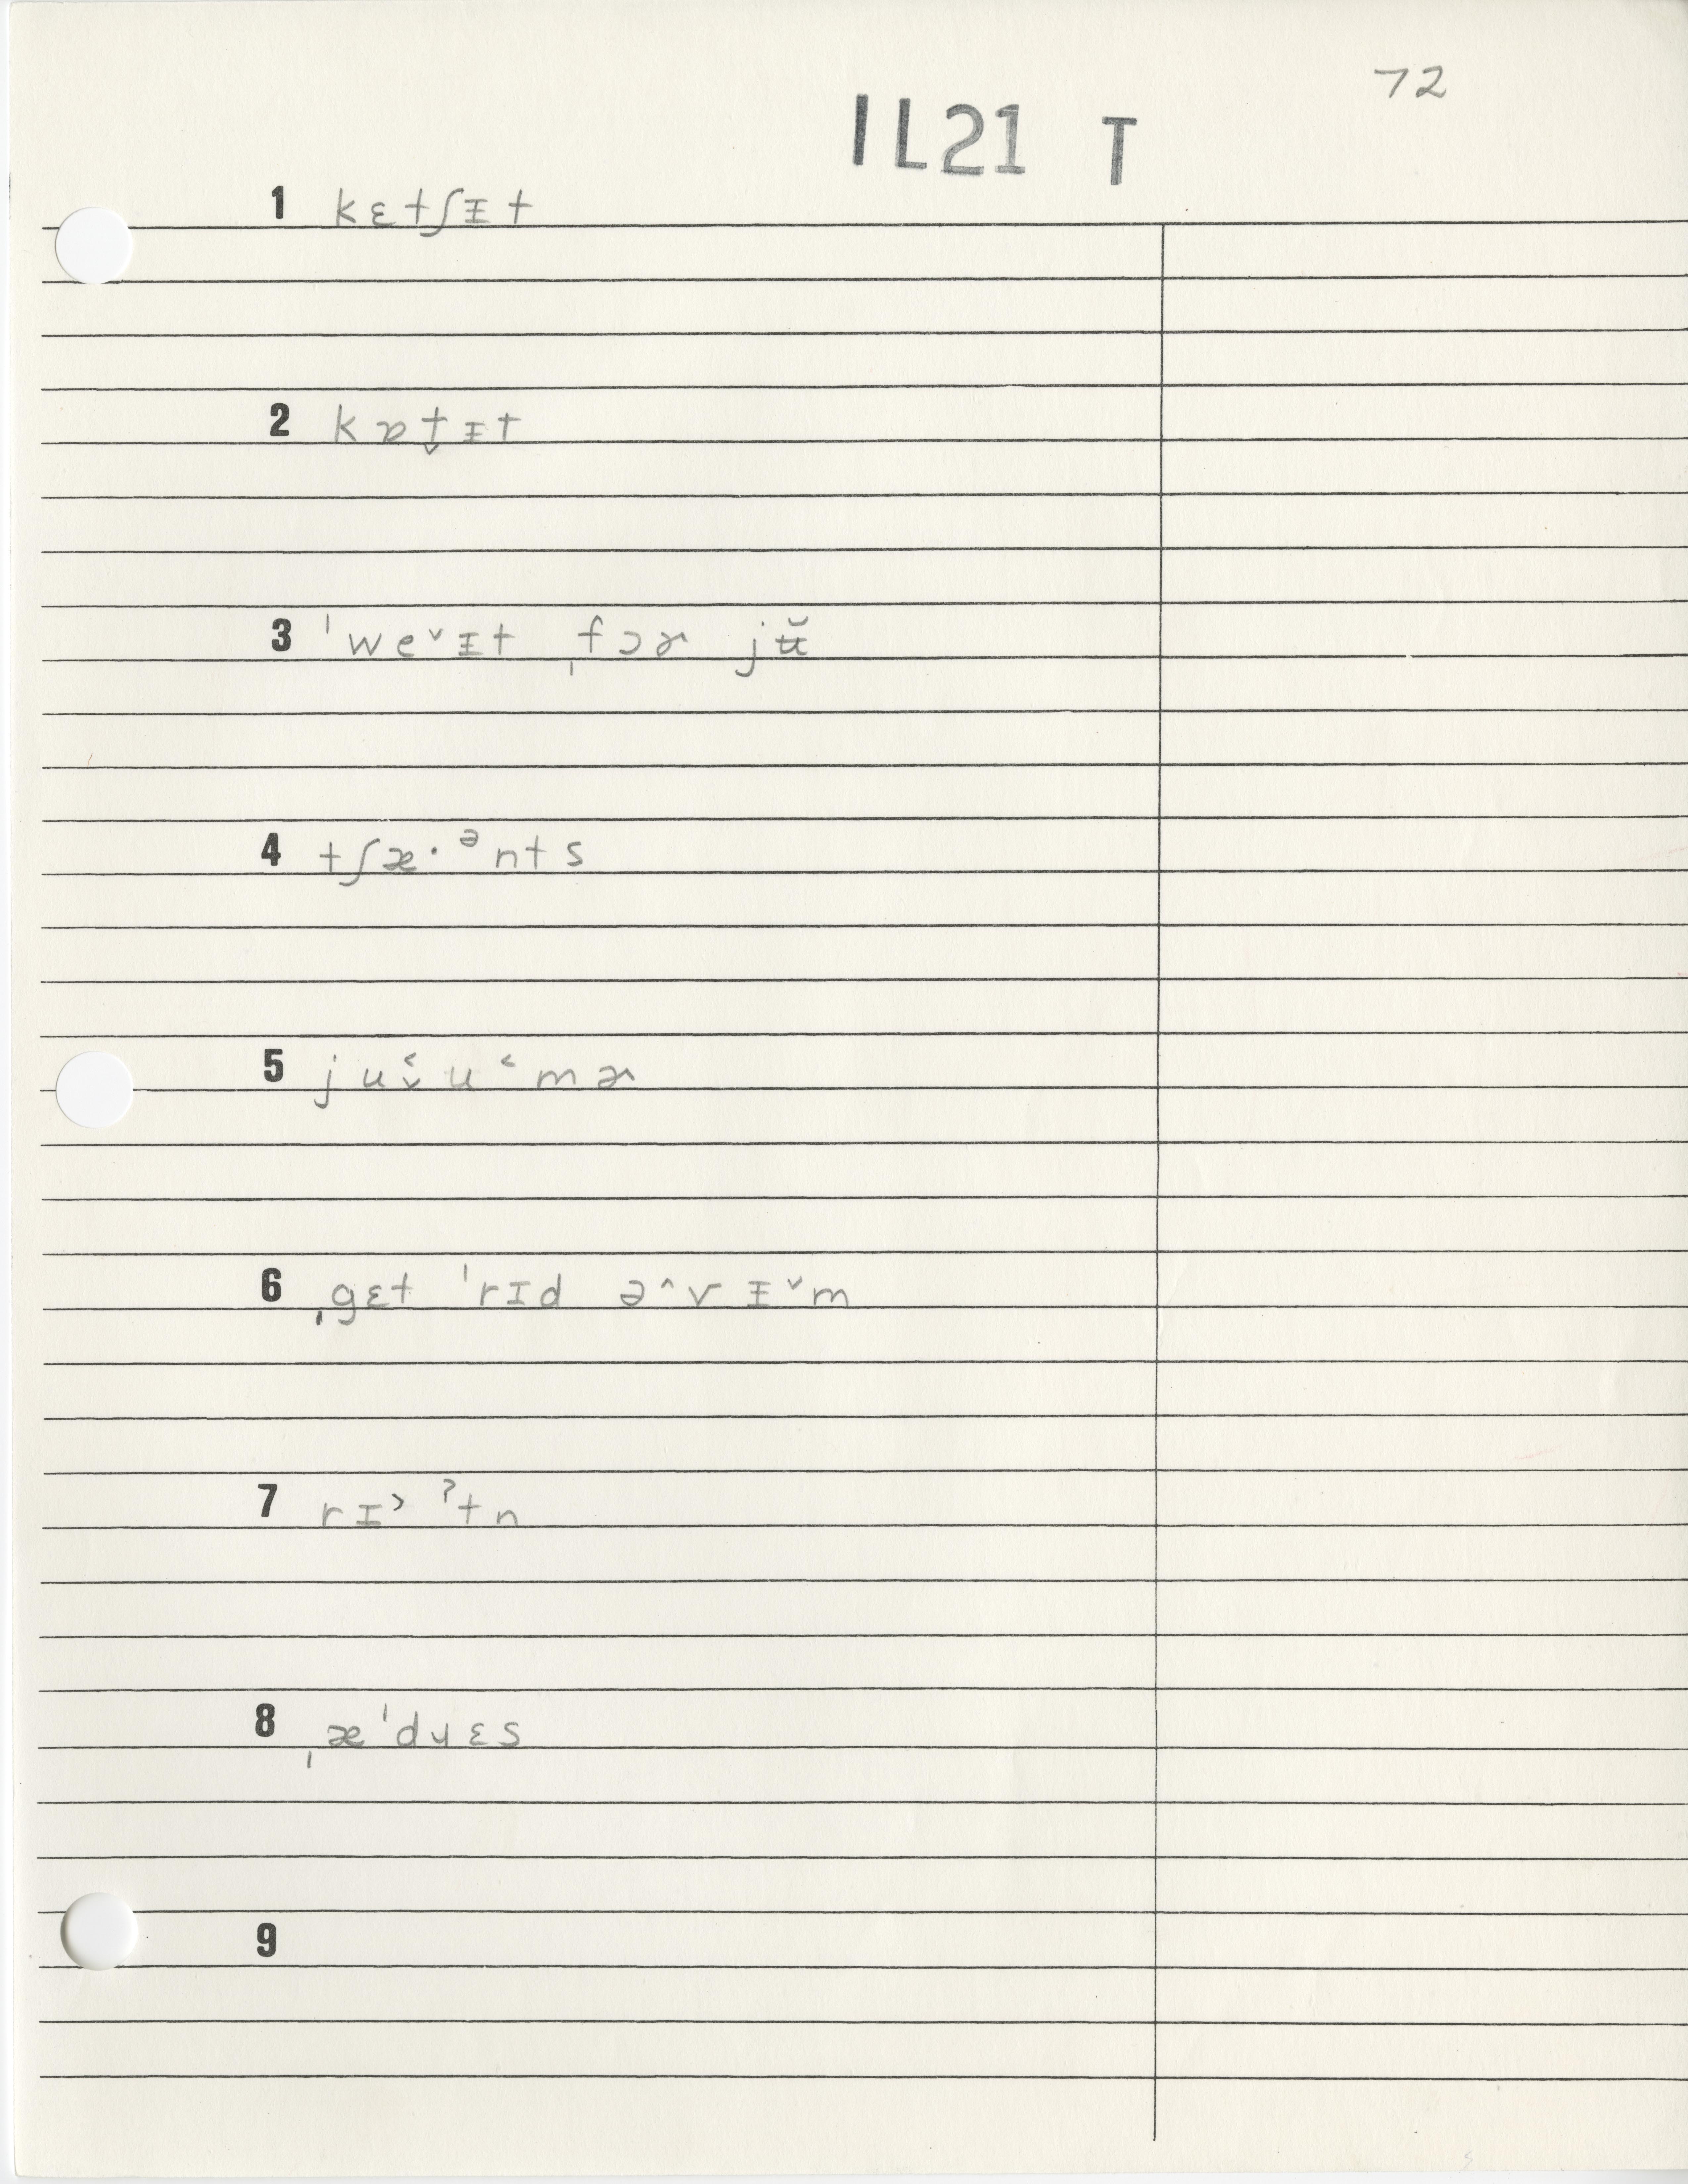 72
IL21 T
1 kɛtʃɪt
2 kɒt̬ɪt
3 ˈweˇɪt ˌfɔɚ jʉ̆
4 tʃæ·ᵊnts
5 ju˂ˬu˂mɚ
6 ˌgɛt ˈrɪd ə^v ɪˇm
7 rɪ˃ ˀtn
8 ˌæˈdɹɛs
9